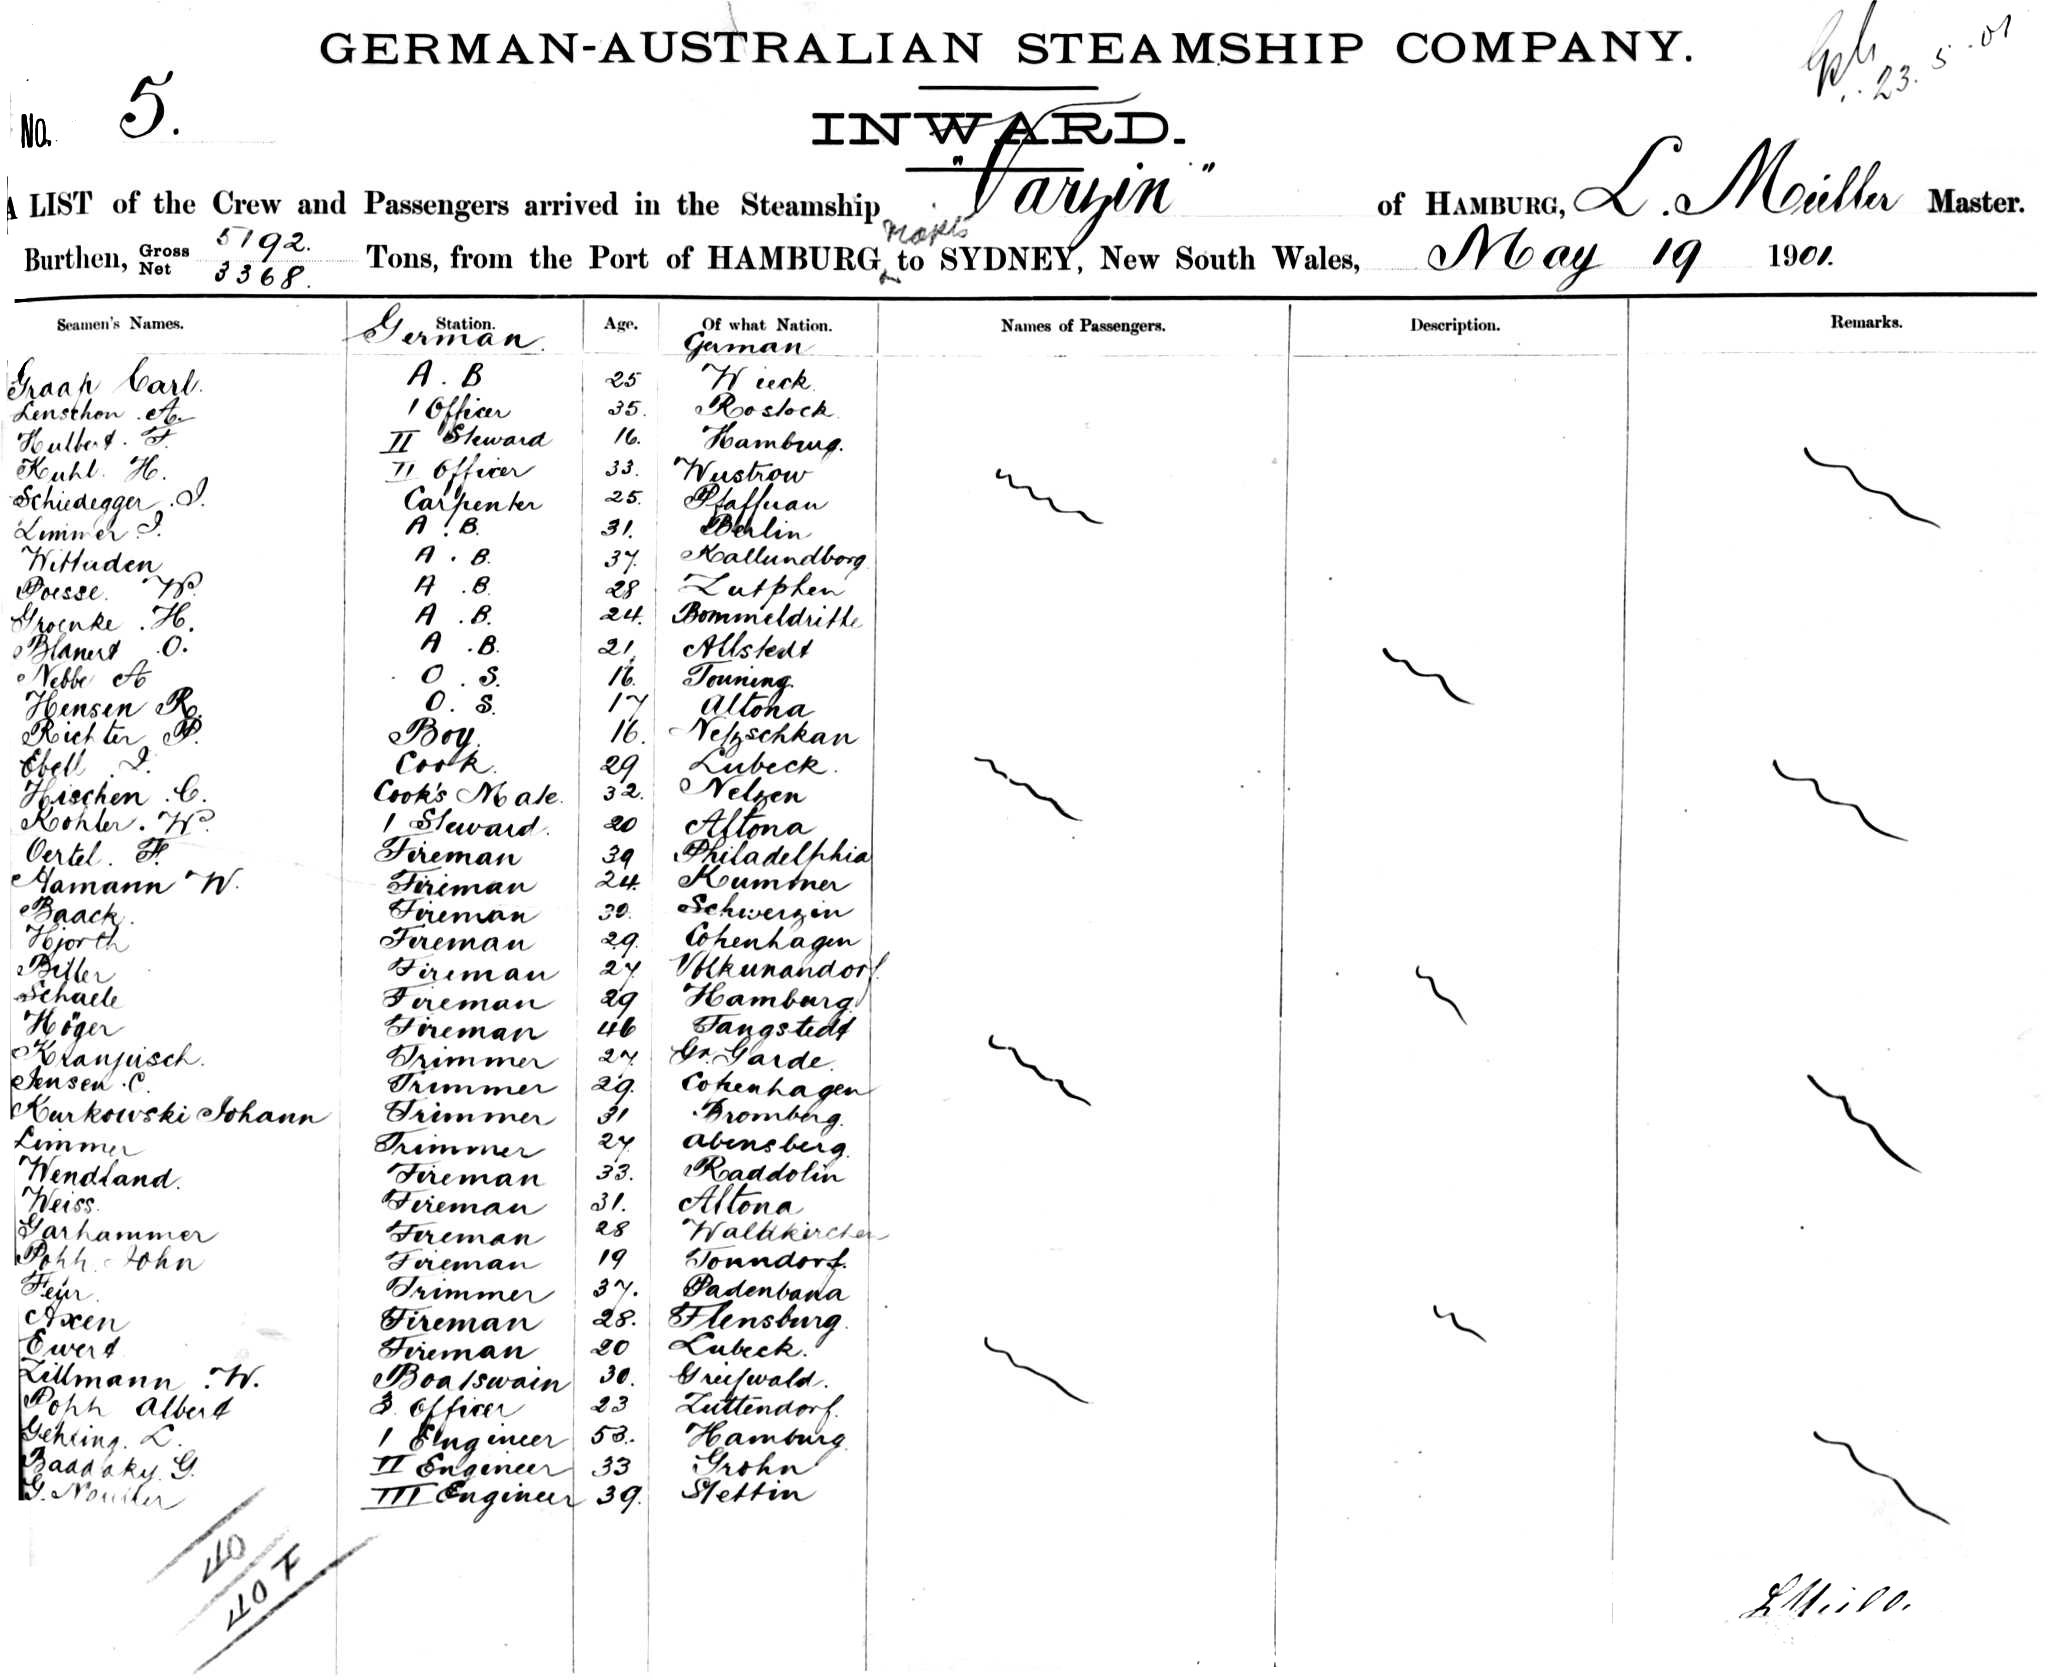 GERMAN-AUSTRALIAN STEAMSHIP COMPANY.
23.5.01
No. 5.
INWARD.
A LIST of the Crew and Passengers arrived in the Steamship "Varzin" of HAMBURG, L. Müller Master.
Burthen, Gross 5192. Net 3368. Tons, from the Port of HAMBURG to SYDNEY, New South Wales, May 19 1901.
Seamen's Names. Station. Age. Of what Nation. Names of Passengers. Description. Remarks.
German German
Graap Carl. A. B 25 Wieck
Lenschon A. 1 Officer 35. Rostock
Hulbert. F. II Steward 16. Hamburg.
Kuhl. H. II Officer 33. Wustrow
Schiedegger. J. Carpenter 25.
Limmer J. A. B. 31. Berlin
A. B. 37. Kallundborg
Poesse. W. A. B. 28 Zutphen
Groenke. H. A. B. 24. Bommeldritte
Blanert O. A. B. 21. Allstedt
Nebbe A O. S. 16. Tonning.
Hensen R. O. S. 17 Altona
Richter P. Boy. 16. Netzschkau
Ebell J. Cook. 29 Lubeck.
Hischen. C. Cook's Mate. 32. Nelzen
Kohler. W. 1 Steward. 20 Altona
Oertel. F. Fireman 39 Philadelphia
Hamann W. Fireman 24. Kummer
Baack. Fireman 30. Schwerzin
Hjorth Fireman 29. Copenhagen
Bitter Fireman 27
Schaele Fireman 29 Hamburg
Höger Fireman 46 Tangstedt
Trimmer 27. Gr. Garde.
Jensen. C. Trimmer 29. Copenhagen
Kurkowski Johann Trimmer 31 Bromberg.
Limmer Trimmer 27. Abensberg.
Wendland. Fireman 33. Raddolin
Weiss. Fireman 31. Altona
Garhammer Fireman 28 Waldkirchen
Popp. John Fireman 19 Tonndorf.
Trimmer 37. Padenbana
Axen Fireman 28. Flensburg.
Ewert Fireman 20 Lubeck.
Zillmann. W. Boatswain 30. Greifwald.
Popp Albert 3. Officer 23 Zuttendorf.
Gehring. L. 1 Engineer 53. Hamburg
G. II Engineer 33 Grohn
G. III Engineer 39. Stettin
40
40 F